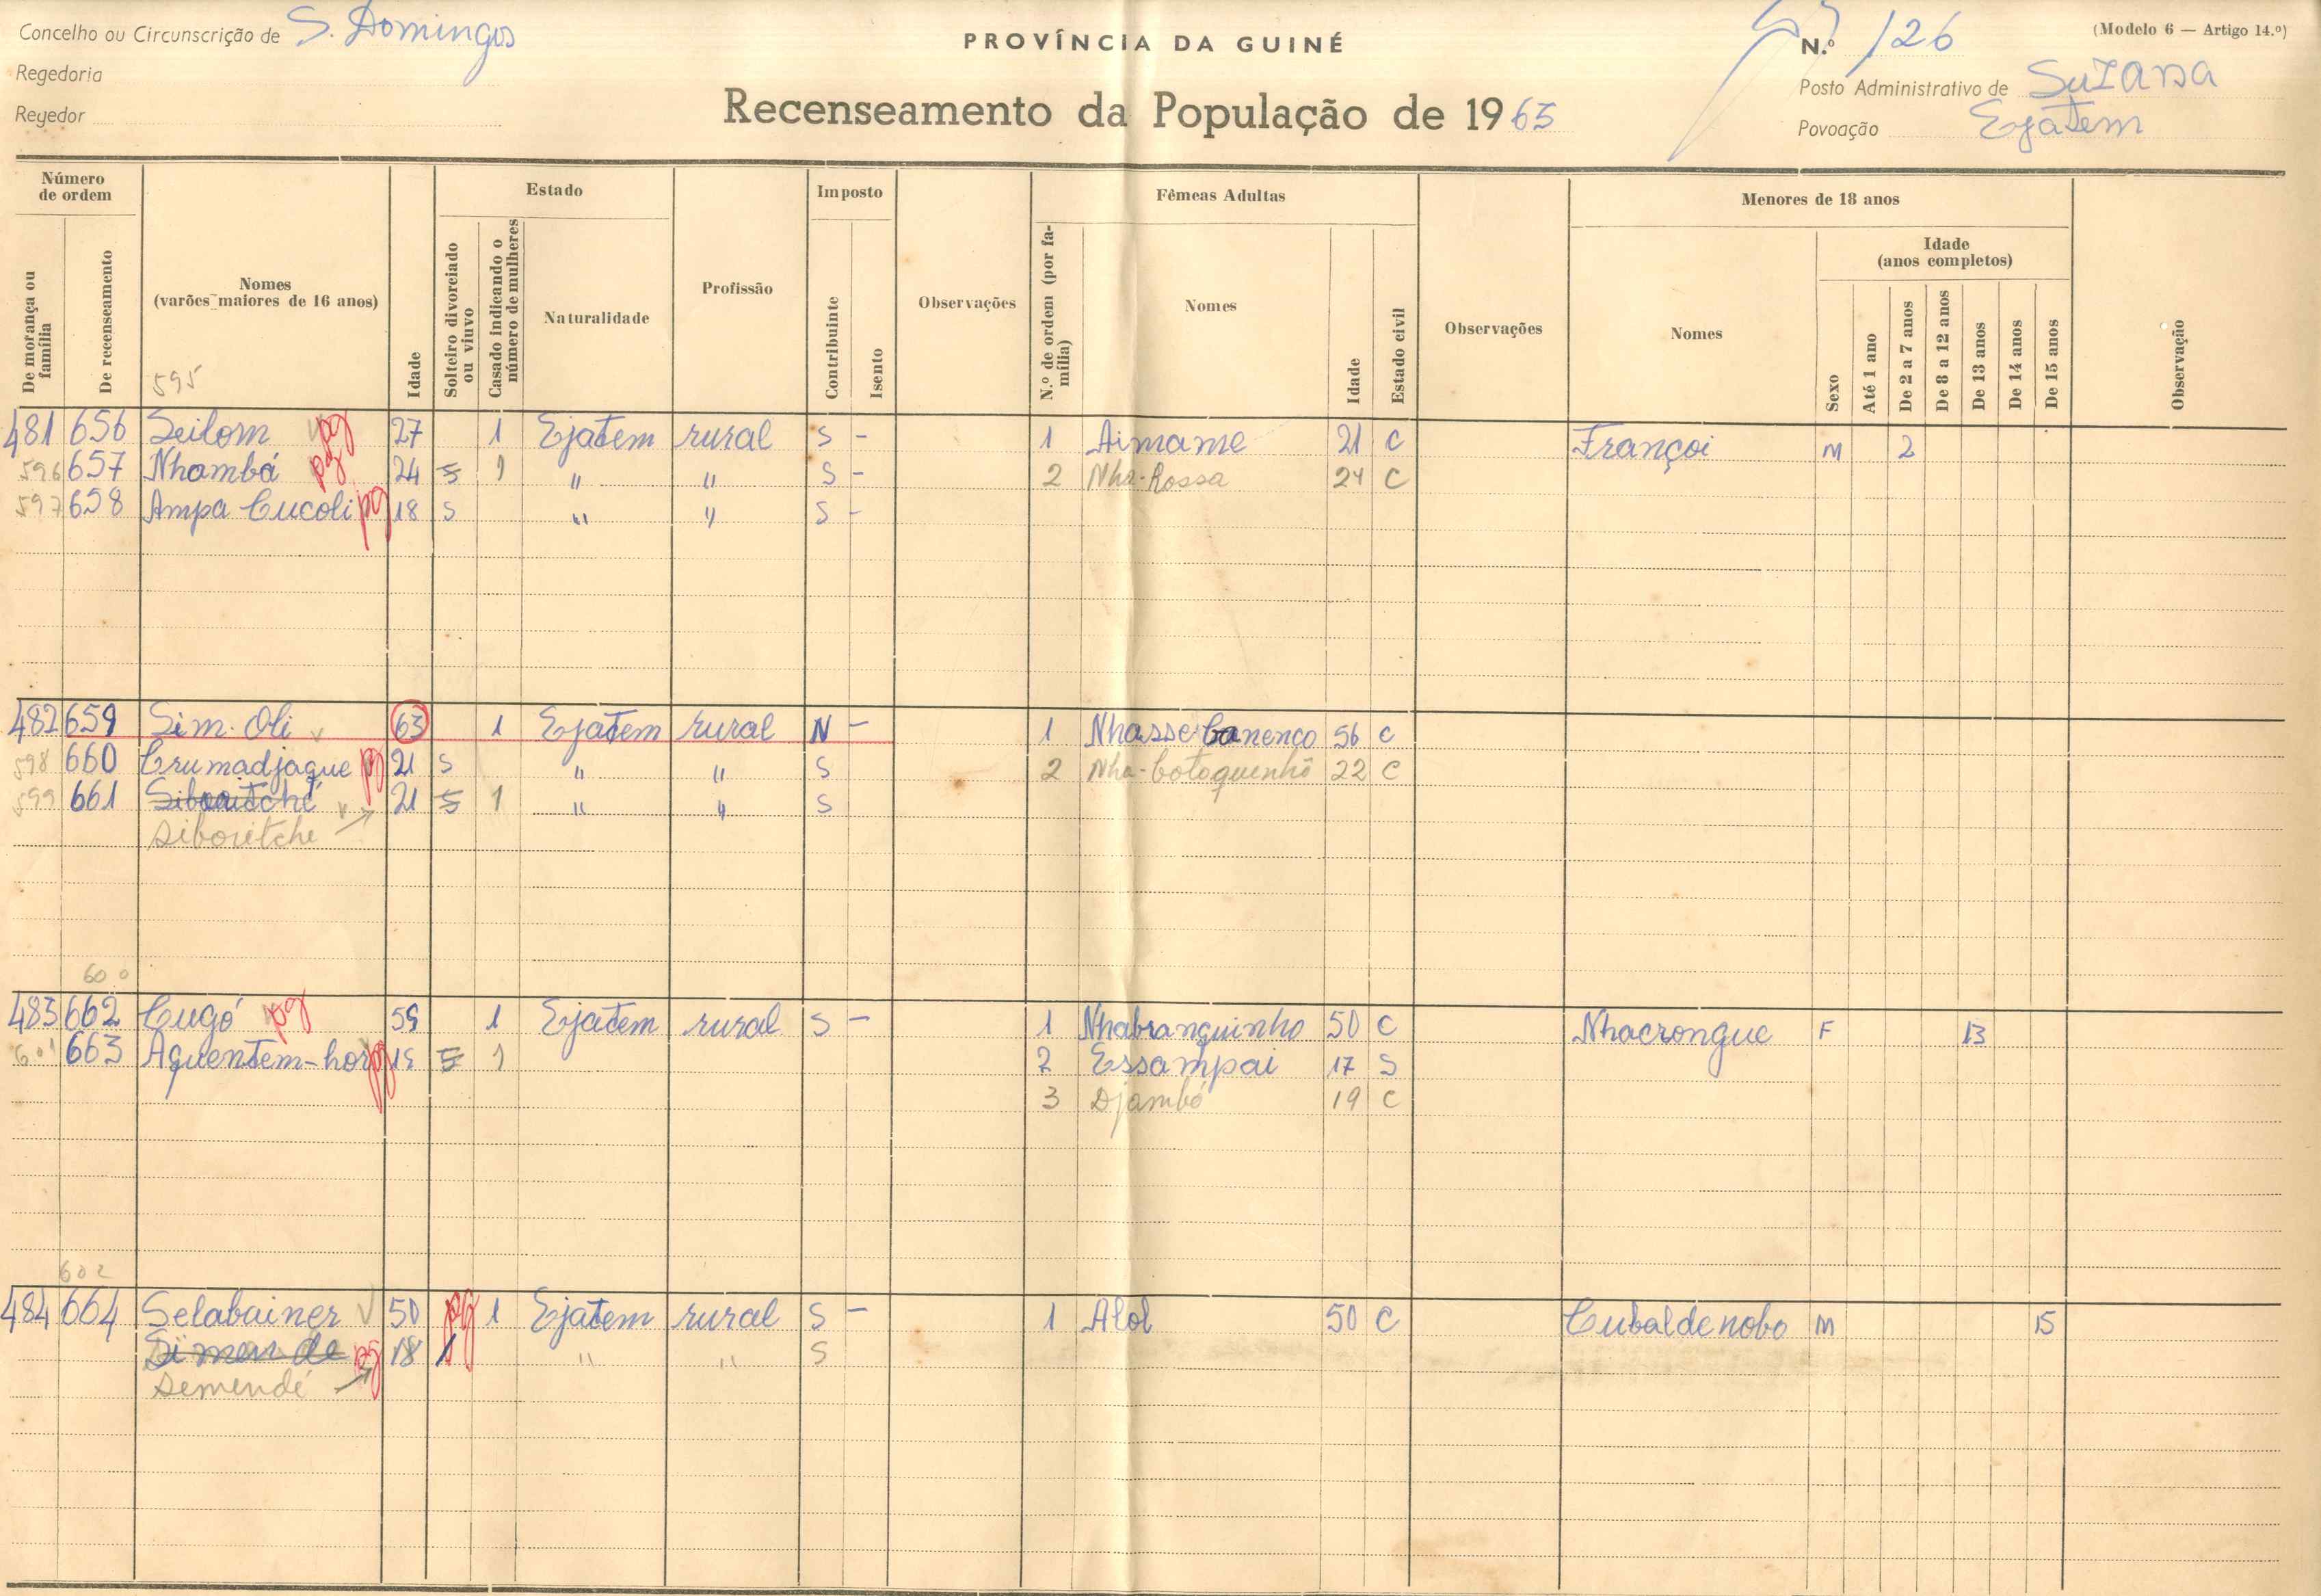 Concelho ou Circunscrição de S. Domingos
PROVÍNCIA DA GUINÉ
N.º 126
(Modelo 6 — Artigo 14.º)
Regedoria
Posto Administrativo de Suzana
Regedor
Recenseamento da População de 1965
Povoação Ejatem
Número de ordem
Estado
Imposto
Fêmeas Adultas
Menores de 18 anos
De morança ou família
De recenseamento
Nomes (varões maiores de 16 anos)
Idade
Solteiro divorciado ou viuvo
Casado indicando o número de mulheres
Naturalidade
Profissão
Contribuinte
Isento
Observações
N.º de ordem (por família)
Nomes
Idade
Estado civil
Observações
Nomes
Sexo
Idade (anos completos)
Até 1 ano
De 2 a 7 anos
De 8 a 12 anos
De 13 anos
De 14 anos
De 15 anos
Observação
595
481 656 Seilom pg 27 1 Ejatem rural S - 1 Aimame 21 C Françoi M 2
596 657 Nhambá pg 24 S 1 " " S - 2 Nha-Rossa 24 C
597 658 Ampa Cucoli pg 18 S " " S -
482 659 Sim. Oli 63 1 Ejatem rural N - 1 Nhasse Canenco 56 C
598 660 Crumadjaque pg 21 S " " S 2 Nha-Cotoquenhô 22 C
599 661 21 S 1 " " S
Siboritche
600
483 662 Cugó pg 59 1 Ejatem rural S - 1 Nhabranquinho 50 C Nhacrongue F 13
601 663 Aquentem-hor pg S 1 2 Essampai 17 S
3 Djambó 19 C
602
484 664 Selabainer 50 pg 1 Ejatem rural S - 1 Alol 50 C Cubaldenobo M 15
Simende pg 18 1 " " S
Semendé